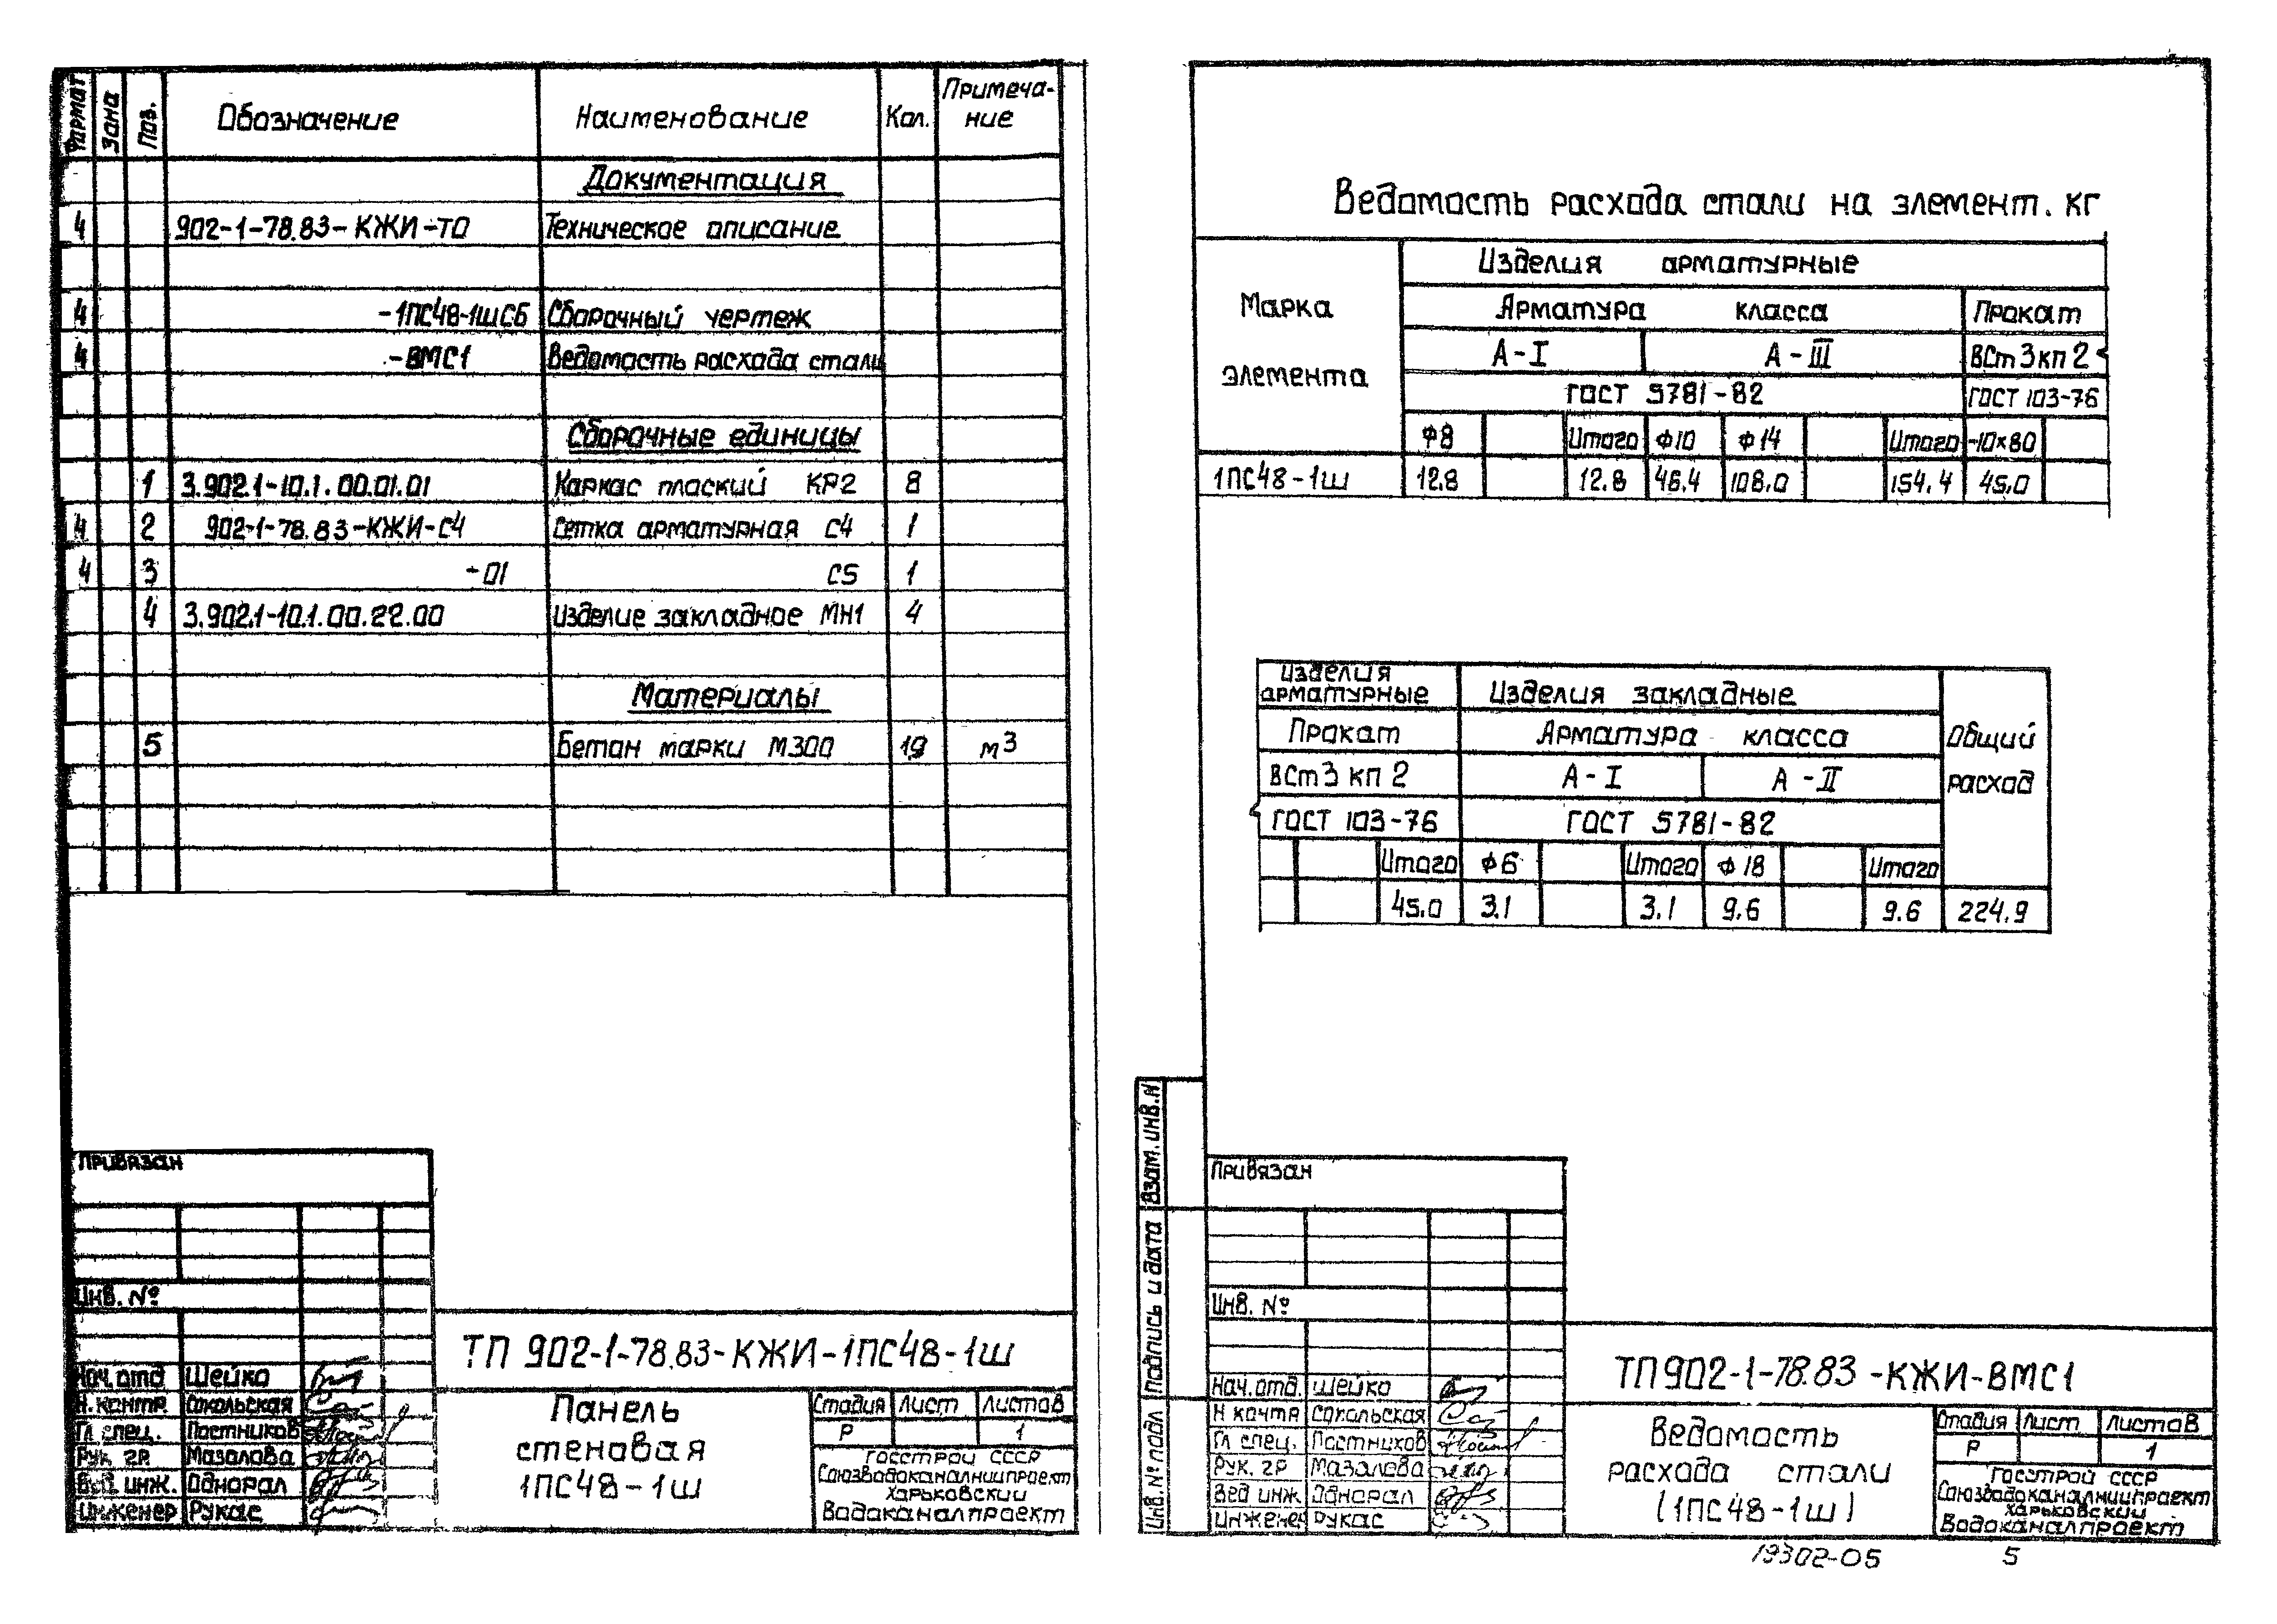 Формат Зона Поз. Обозначение Наименование Кол. Примеча-
ние
Документация
4 902-1-78.83-КЖИ-ТО Техническое описание
4 -1ПС48-1шСБ Сборочный чертеж
4 -ВМС1 Ведомость расхода стали
Сборочные единицы
1 3.902.1-10.1.00.01.01 Каркас плоский КР2 8
4 2 902-1-78.83-КЖИ-С4 Сетка арматурная С4 1
4 3 -01 С5 1
4 3.902.1-10.1.00.22.00 Изделие закладное МН1 4
Материалы
5 Бетон марки М300 1,9 м3
Привязан
Инв. №
ТП 902-1-78.83-КЖИ-1ПС48-1ш
Нач. отд Шейко
Н. контр. Сокольская
Гл спец. Постников
Рук. гр. Мазалова
Вед. инж. Однорал
Инженер Рукас
Панель
стеновая
1ПС48-1ш
Стадия Лист Листов
Р 1
Госстрой СССР
Союзводоканалниипроект
Харьковский
Водоканалпроект
Ведомость расхода стали на элемент. кг
Марка
элемента
Изделия арматурные
Арматура класса Прокат
А-I А-III ВСт3кп2
ГОСТ 5781-82 ГОСТ 103-76
Ф8 Итого Ф10 Ф14 Итого -10×80
1ПС48-1ш 12.8 12.8 46.4 108.0 154.4 45.0
Изделия
арматурные Изделия закладные Общий
расход
Прокат Арматура класса
ВСт3 кп 2 А-I А-II
ГОСТ 103-76 ГОСТ 5781-82
Итого Ф6 Итого Ф18 Итого
45.0 3.1 3.1 9.6 9.6 224.9
Взам. инв. N
Подпись и дата
Инв. № подл
Привязан
Инв. №
ТП902-1-78.83-КЖИ-ВМС1
Нач. отд. Шейко
Н контр Сокольская
Гл спец. Постников
Рук. гр Мазалова
Вед инж. Однорал
Инженер Рукас
Ведомость
расхода стали
(1ПС48-1ш)
Стадия Лист Листов
Р 1
Госстрой СССР
Союзводоканалниипроект
Харьковский
Водоканалпроект
19302-05 5